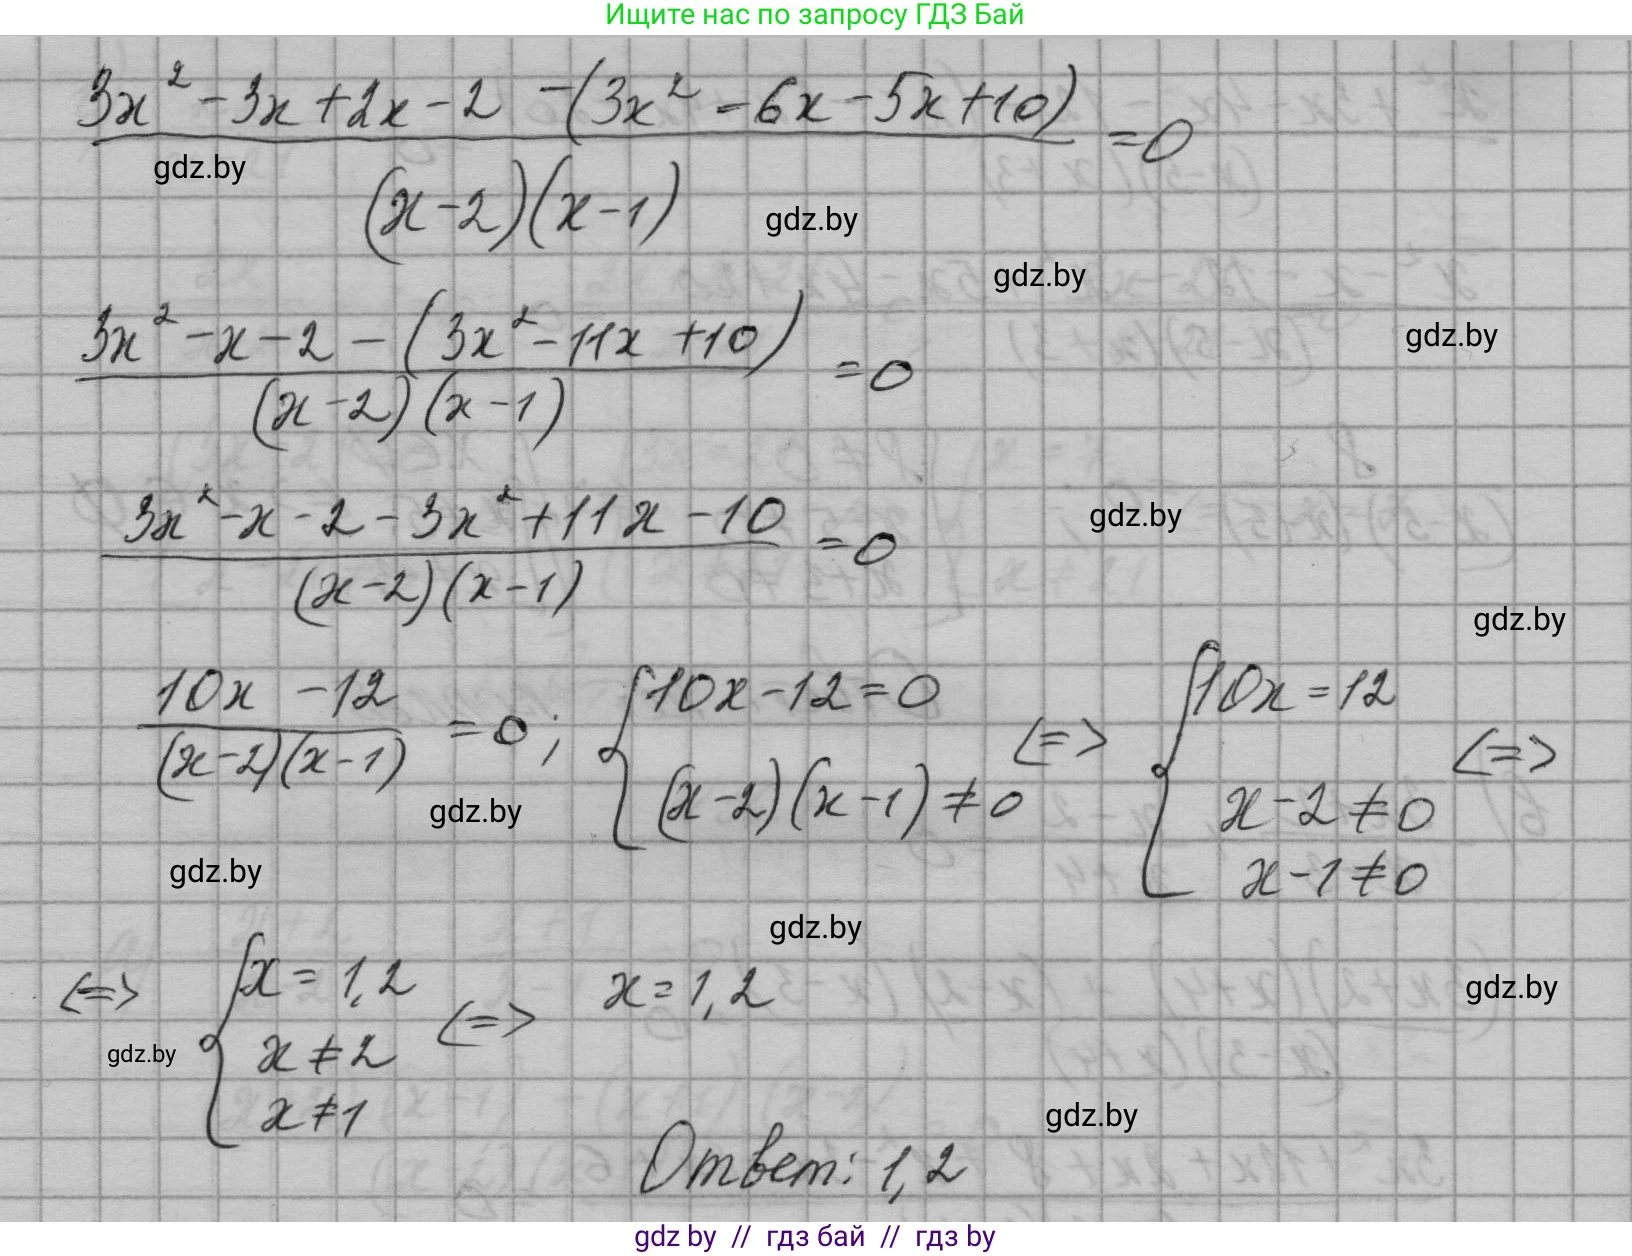 Ищите нас по запросу ГДЗ Бай
3x² - 3x + 2x - 2 - (3x² - 6x - 5x + 10)
= 0
gdz.by
(x - 2)(x - 1)
gdz.by
gdz.by
3x² - x - 2 - (3x² - 11x + 10)
= 0
gdz.by
(x - 2)(x - 1)
3x² - x - 2 - 3x² + 11x - 10
= 0
gdz.by
(x - 2)(x - 1)
gdz.by
10x - 12
= 0;
(x - 2)(x - 1)
{ 10x - 12 = 0
(x - 2)(x - 1) ≠ 0
<=>
{ 10x = 12
x - 2 ≠ 0
x - 1 ≠ 0
<=>
gdz.by
gdz.by
gdz.by
<=>
{ x = 1,2
x ≠ 2
x ≠ 1
<=>
x = 1,2
gdz.by
gdz.by
gdz.by
Ответ: 1,2
gdz by // гдз бай // гдз by